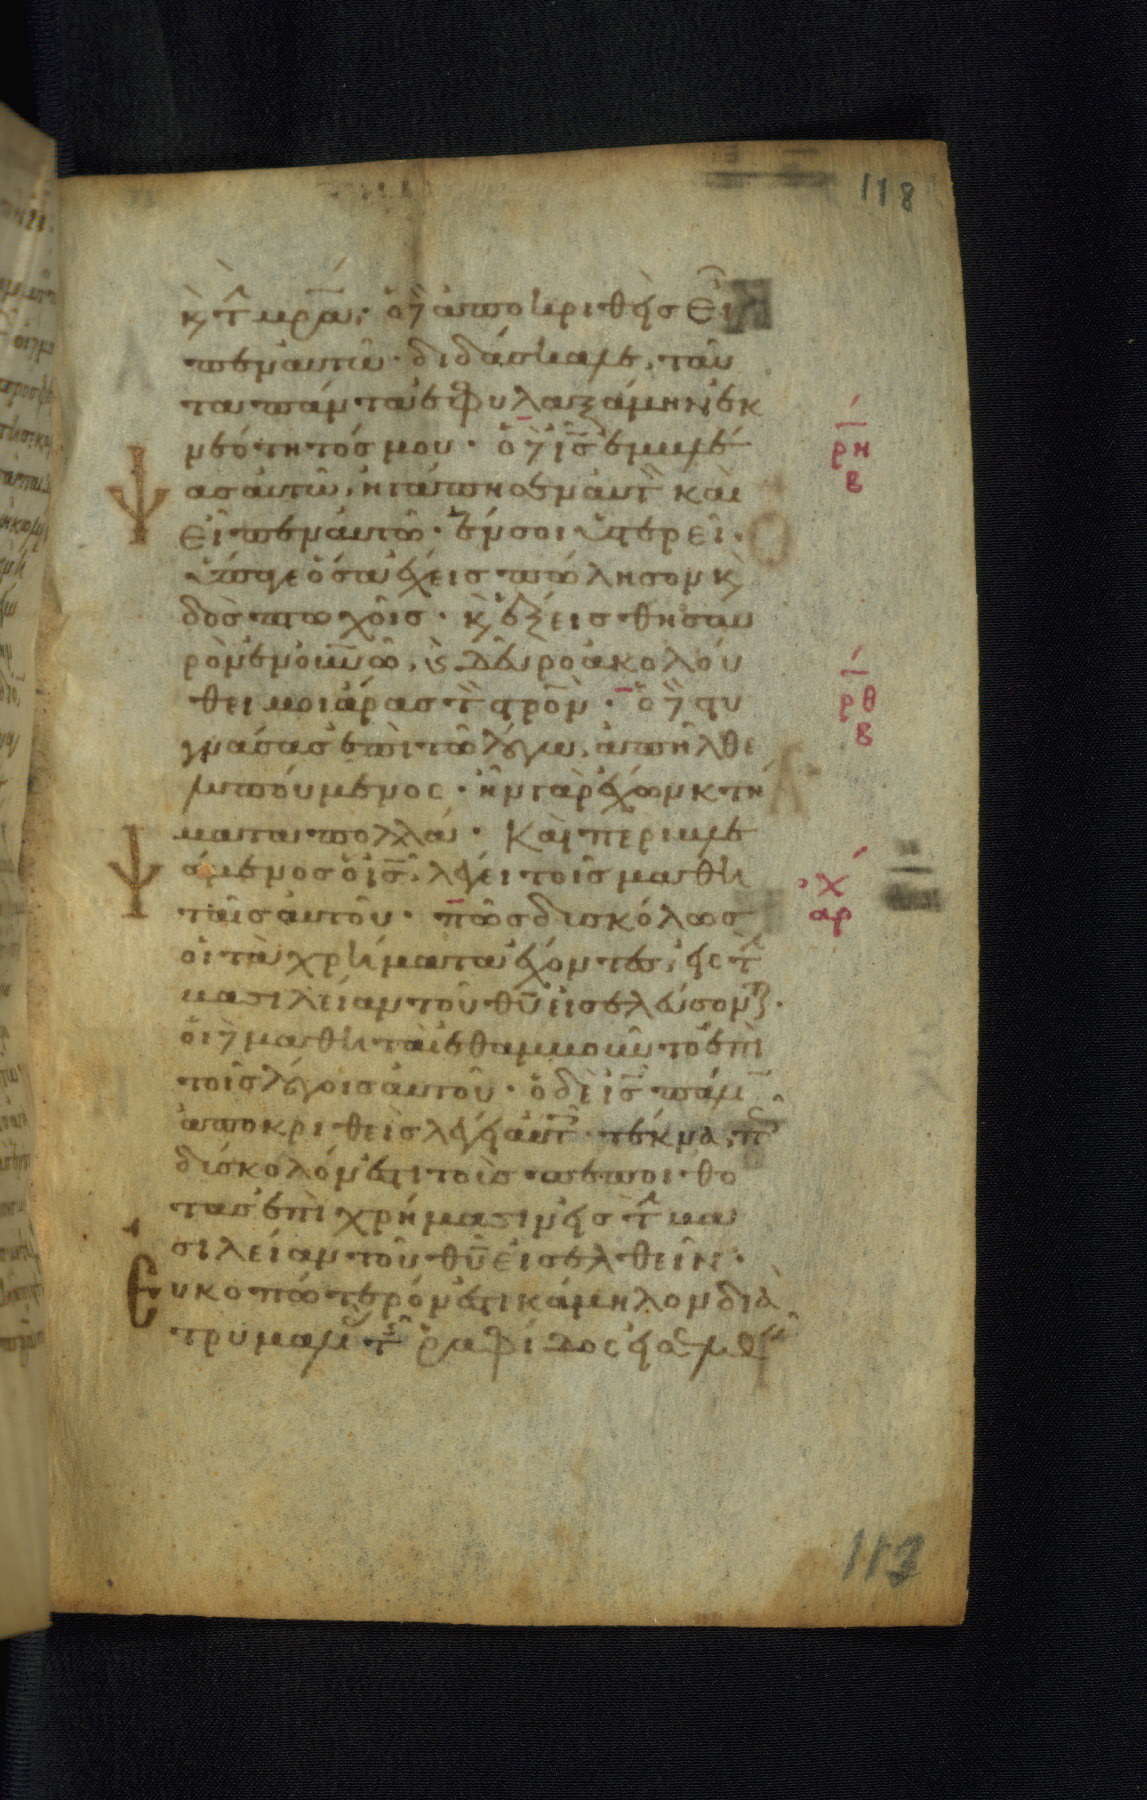 118
κ̀ τ̂ μρ̅α· ὁ δὲ ἀποκριθεὶς εἶ
πεν αὐτῶ· διδάσκαλε, ταῦ
τα πάντα ἐφυλαξάμην ἐκ
νεότητός μου· ὁ δὲ ι̅ς̅ ἐμβλέ
ψας αὐτῶ, ἠγάπησεν αὐτ̀ καὶ
εἶπεν αὐτῶ· ἕν σοι ὑστερεῖ·
ὕπαγε ὅσα ἔχεις πώλησον κ̀
δὸς πτωχοῖς· κ̀ ἕξεις θησαυ
ρὸν ἐν ο̅υ̅ν̅ω̅, κ̀ δεῦρο ἀκολού
θει μοι ἄρας τ̀ σ̅ρ̅ο̅ν̅· ὁ δὲ στυ
γνάσας ἐπὶ τῶ λόγω, ἀπῆλθε
λυπούμενος· ἦν γὰρ ἔχων κτή
ματα πολλά· Καὶ περιβλε
ψάμενος ὁ ι̅ς̅, λέγει τοῖς μαθη
ταῖς αὐτοῦ· πῶς δυσκόλως
οἱ τὰ χρήματα ἔχοντες, εἰς τ̀
βασιλείαν τοῦ θ̅υ̅ εἰσελεύσοντ·
οἱ δὲ μαθηταὶ ἐθαμβοῦντο ἐπὶ
τοῖς λόγοις αὐτοῦ· ὁ δὲ ι̅ς̅ πάλ
ἀποκριθεὶς λέγει αὐτ· τέκνα, π
δύσκολόν ἐστι τοῖς πεποιθό
τας ἐπὶ χρήμασιν εἰς τ̂ βα
σιλείαν τοῦ θ̅υ̅ εἰσελθεῖν·
Εὐκοπώτερόν ἐστι κάμηλον διὰ
τρυμαλι τ ῥαφίδος
ρη
β
ρθ
β
χ
αρ
113